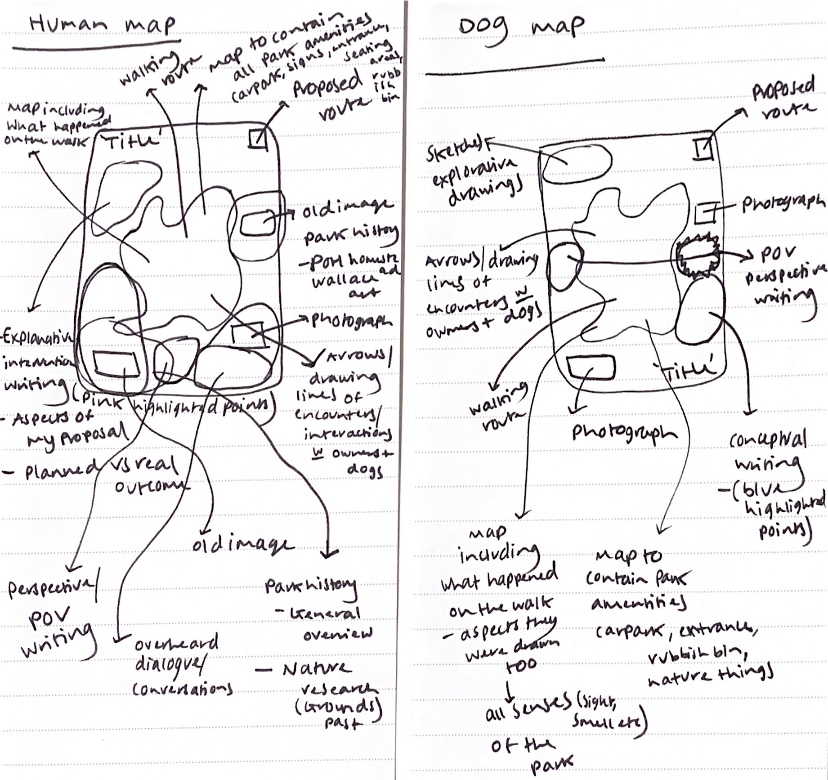 Human map
walking
route
map to contain
all park amenities
carpark, signs, entrance,
seating
areas,
rubb
ish
bin
Proposed
route
map including
what happened
on the walk
'Title'
old image
park history
- port homestead
wallace
art
photograph
-Explanative
intervention
writing
(pink highlighted points)
- Aspects of
my proposal
- Planned vs real
outcome
Arrows/
drawing
lines of
encounters/
interactions
w owners +
dogs
old image
Perspective/
POV
writing
overheard
dialogue/
conversations
Park history
- General
overview
- Nature
research
(Grounds)
past
Dog map
Proposed
route
Sketches +
explorative
drawings
Photograph
Arrows/drawing
lines of
encounters w
owners + dogs
POV
perspective
writing
walking
route
'Title'
Photograph
conceptual
writing
- (blue
highlighted
points)
map
including
what happened
on the walk
- aspects they
were drawn
too
all senses (sight,
smell etc)
of the
park
Map to
contain park
amentities
carpark, entrance,
rubbish bin,
nature things